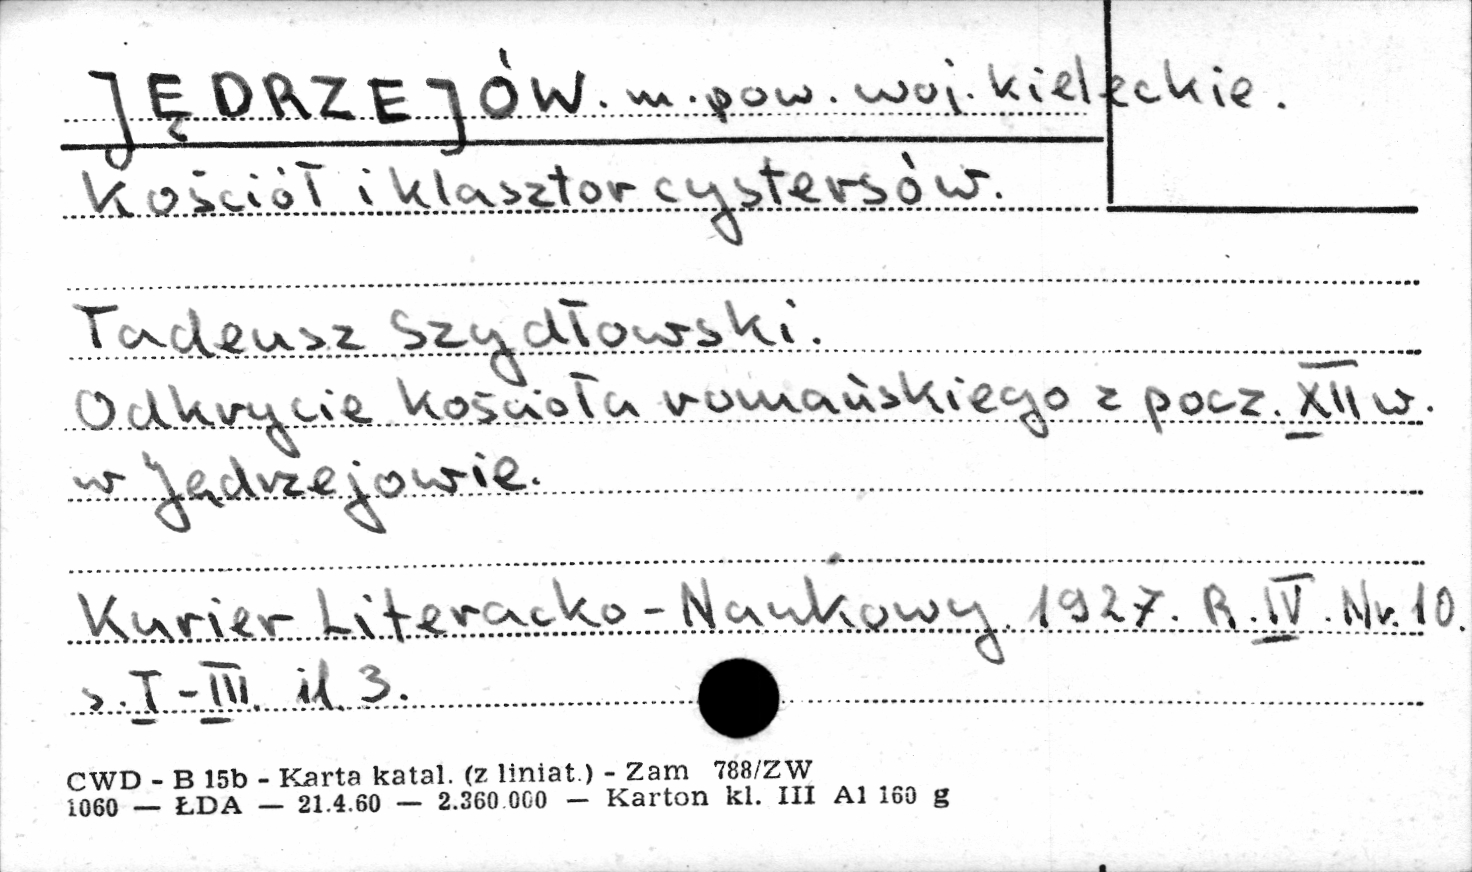 JĘDRZEJÓW. m. pow. woj. kieleckie.
Kościół i klasztor cystersów.
Tadeusz Szydłowski.
Odkrycie kościoła romańskiego z pocz. XII w.
w Jędrzejowie.
Kurier Literacko-Naukowy. 1927. R. IV. Nr. 10.
s. I-III. il. 3.
CWD - B 15b - Karta katal. (z liniat.) - Zam 788/ZW
1060 — ŁDA — 21.4.60 — 2.360.000 — Karton kl. III A1 160 g